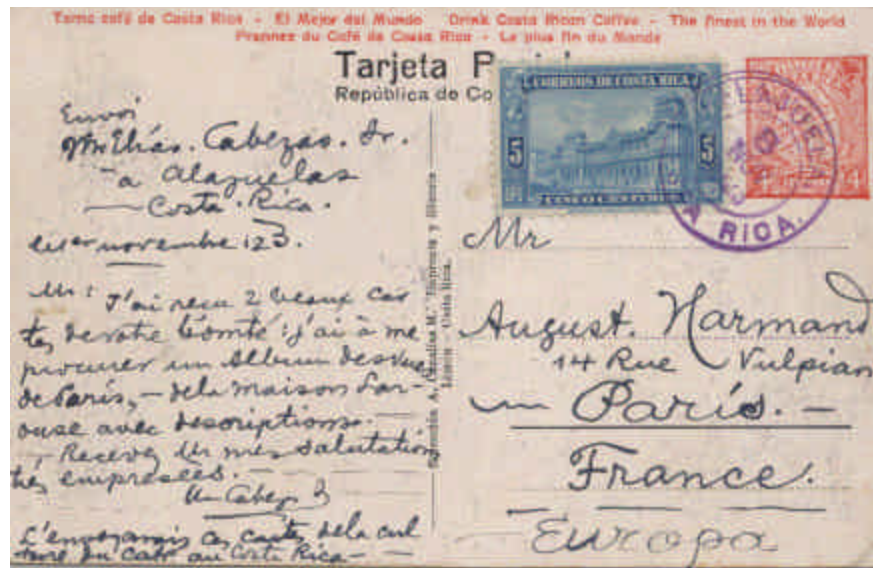 Tome café de Costa Rica - El Mejor del Mundo Drink Costa Rican Coffee - The finest in the World
Prennez du Café de Costa Rica - Le plus fin du Monde
Tarjeta P
República de Co
CORREOS DE COSTA RICA
5 5
CINCO CENTIMOS
4 4
ALAJUELA
RICA.
Envoi
Elías. Cabezas. Jr.
a Alajuelas
Costa. Rica.
novembre 123.
Mr: J'ai reçu 2 beaux car
tes de votre Comté: j'ai à me
procurer un Album des vues
de Paris, - de la maison Lar-
ouse avec descriptions. -
- Recevez Mr mes salutations
très empresées. -
Cabezas
L'envoyerais ces cartes de la cul
ture du Café au Costa Rica -
Imprenta y Librería
Costa Rica.
Mr
August. Harmand
14 Rue Vulpian
Paris. -
France.
Europa